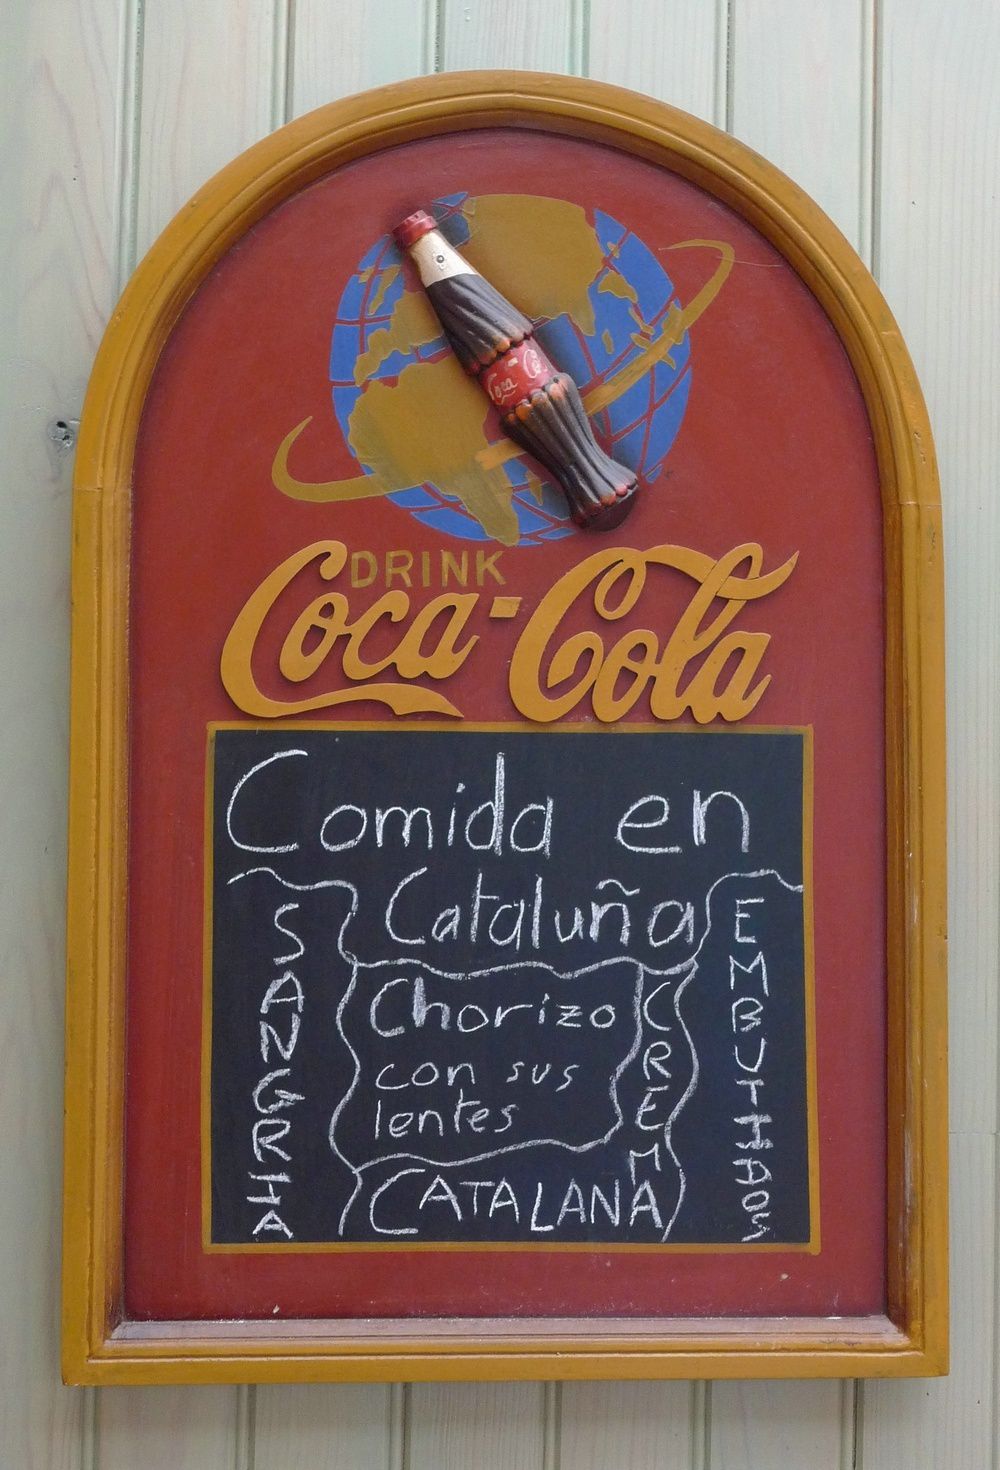 Coca-Co
DRINK
Coca-Cola
Comida en
Cataluña
SANGRIA
Chorizo
con sus
lentes
CREMA
CATALANA
EMBUTIDOS